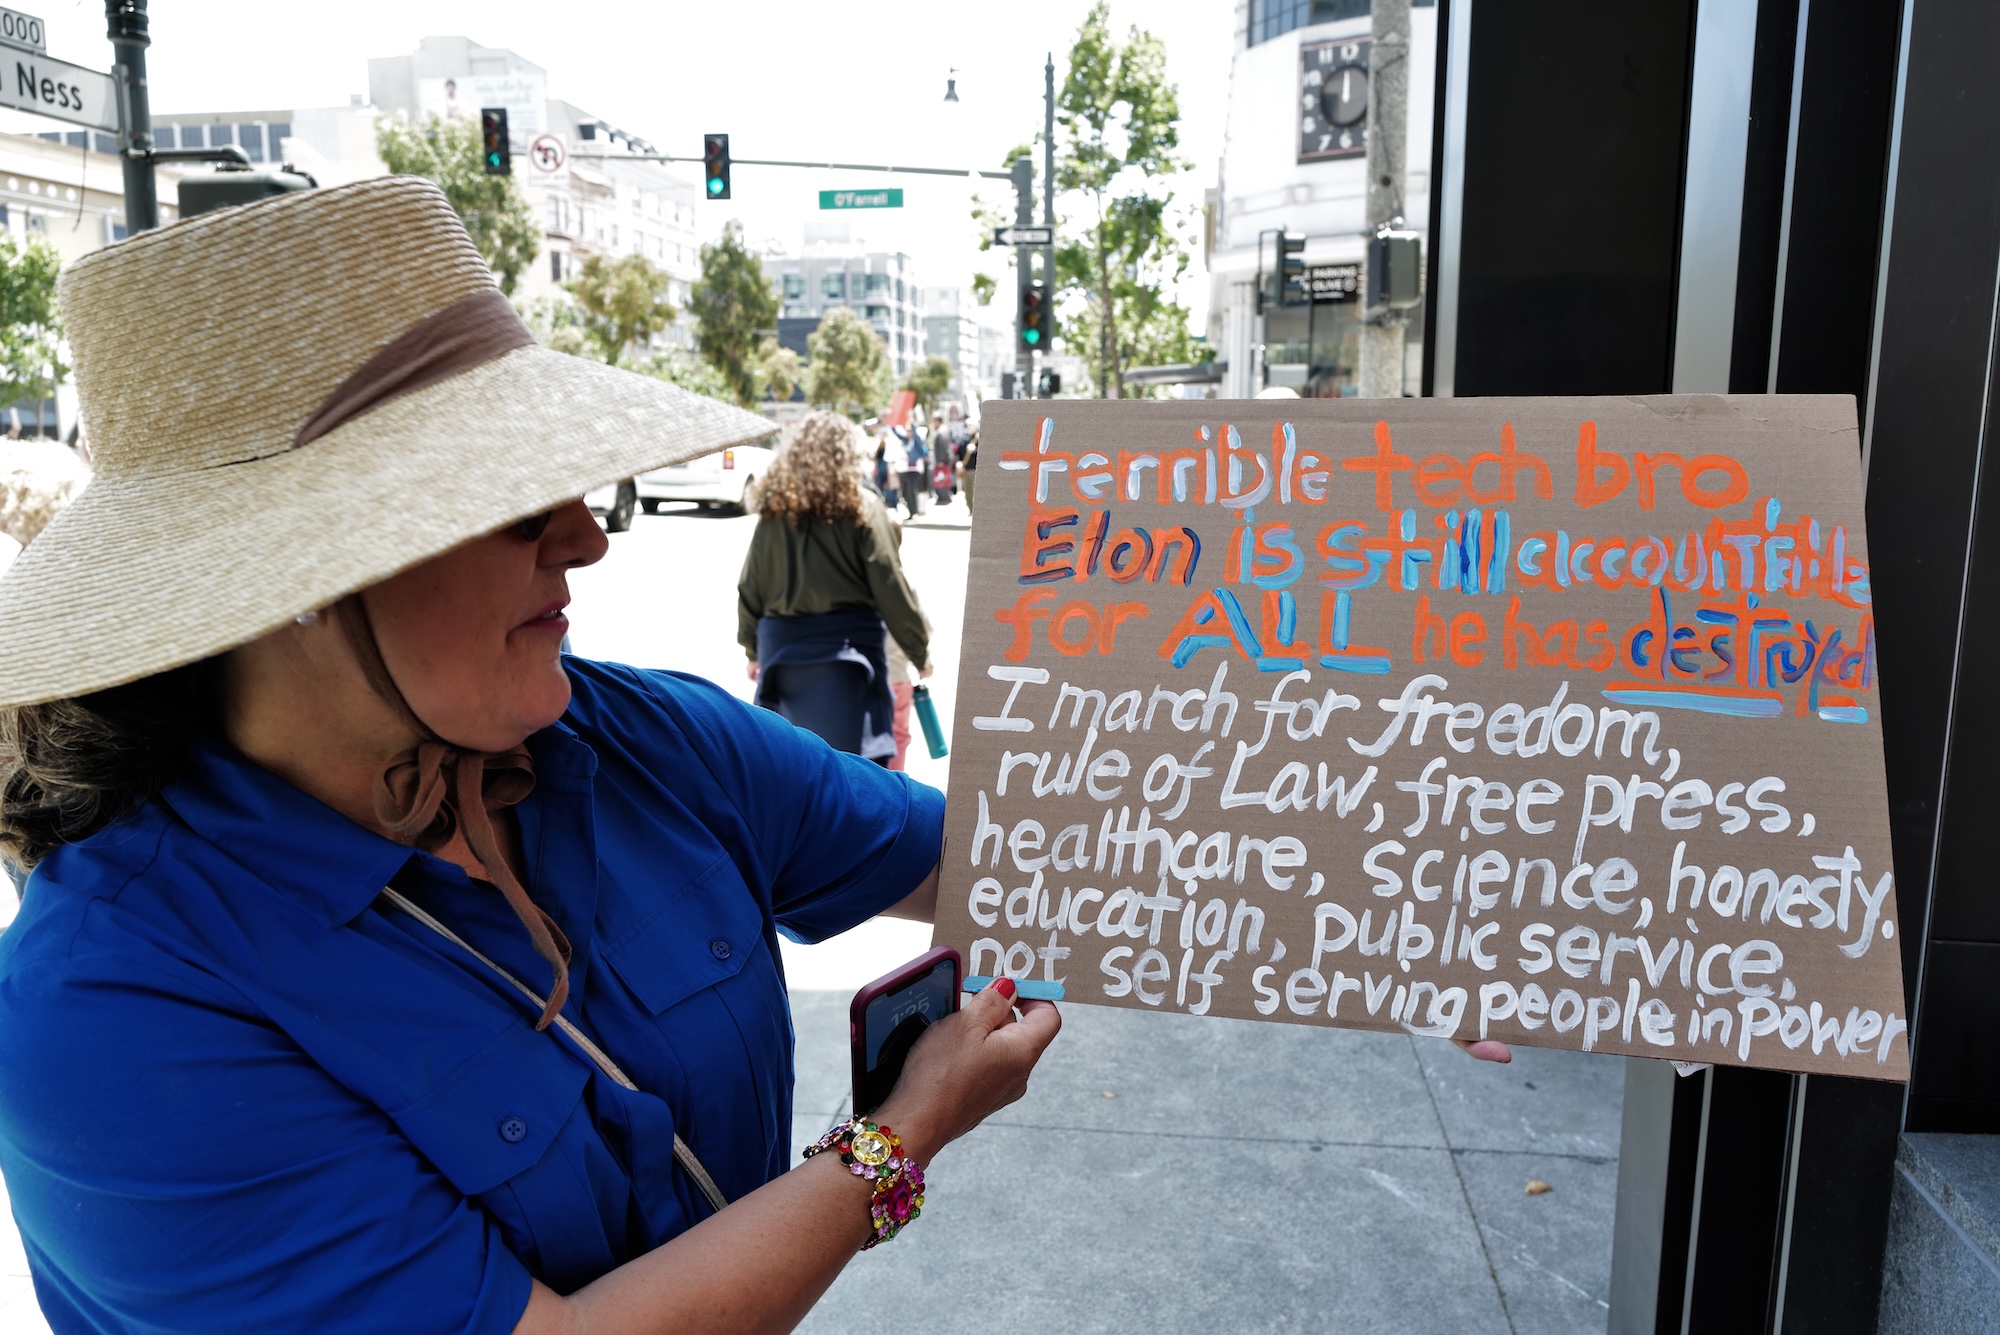 000
Ness
O'Farrell
PARKING
terrible tech bro,
Elon is still accountable
for ALL he has destroyed
I march for freedom,
rule of Law, free press,
healthcare, science, honesty.
education, public service,
not self serving people in power
1:25